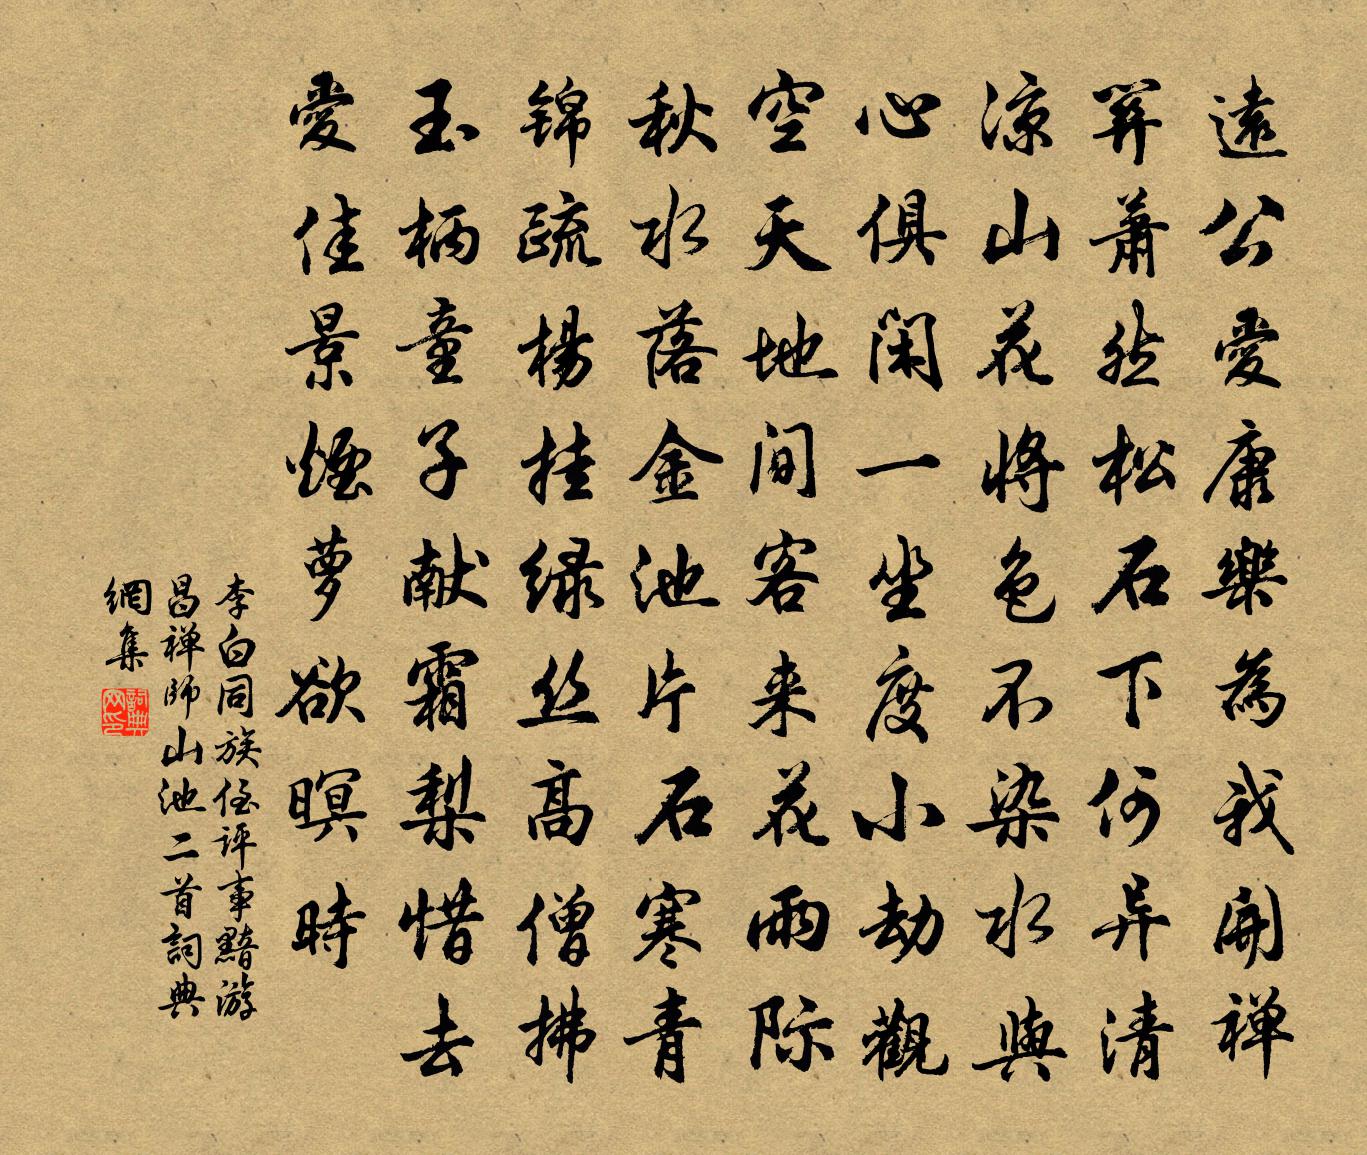 遠公愛康樂為我開禅
關蕭然松石下何异清
凉山花将色不染水與
心俱閑一坐度小劫觀
空天地间客来花雨际
秋水落金池片石寒青
锦疏楊挂绿丝高僧拂
玉柄童子献霜梨惜去
愛佳景煙萝欲暝時
李白同族侄评事黯游
昌禅師山池二首詞典
網集
詞典网印